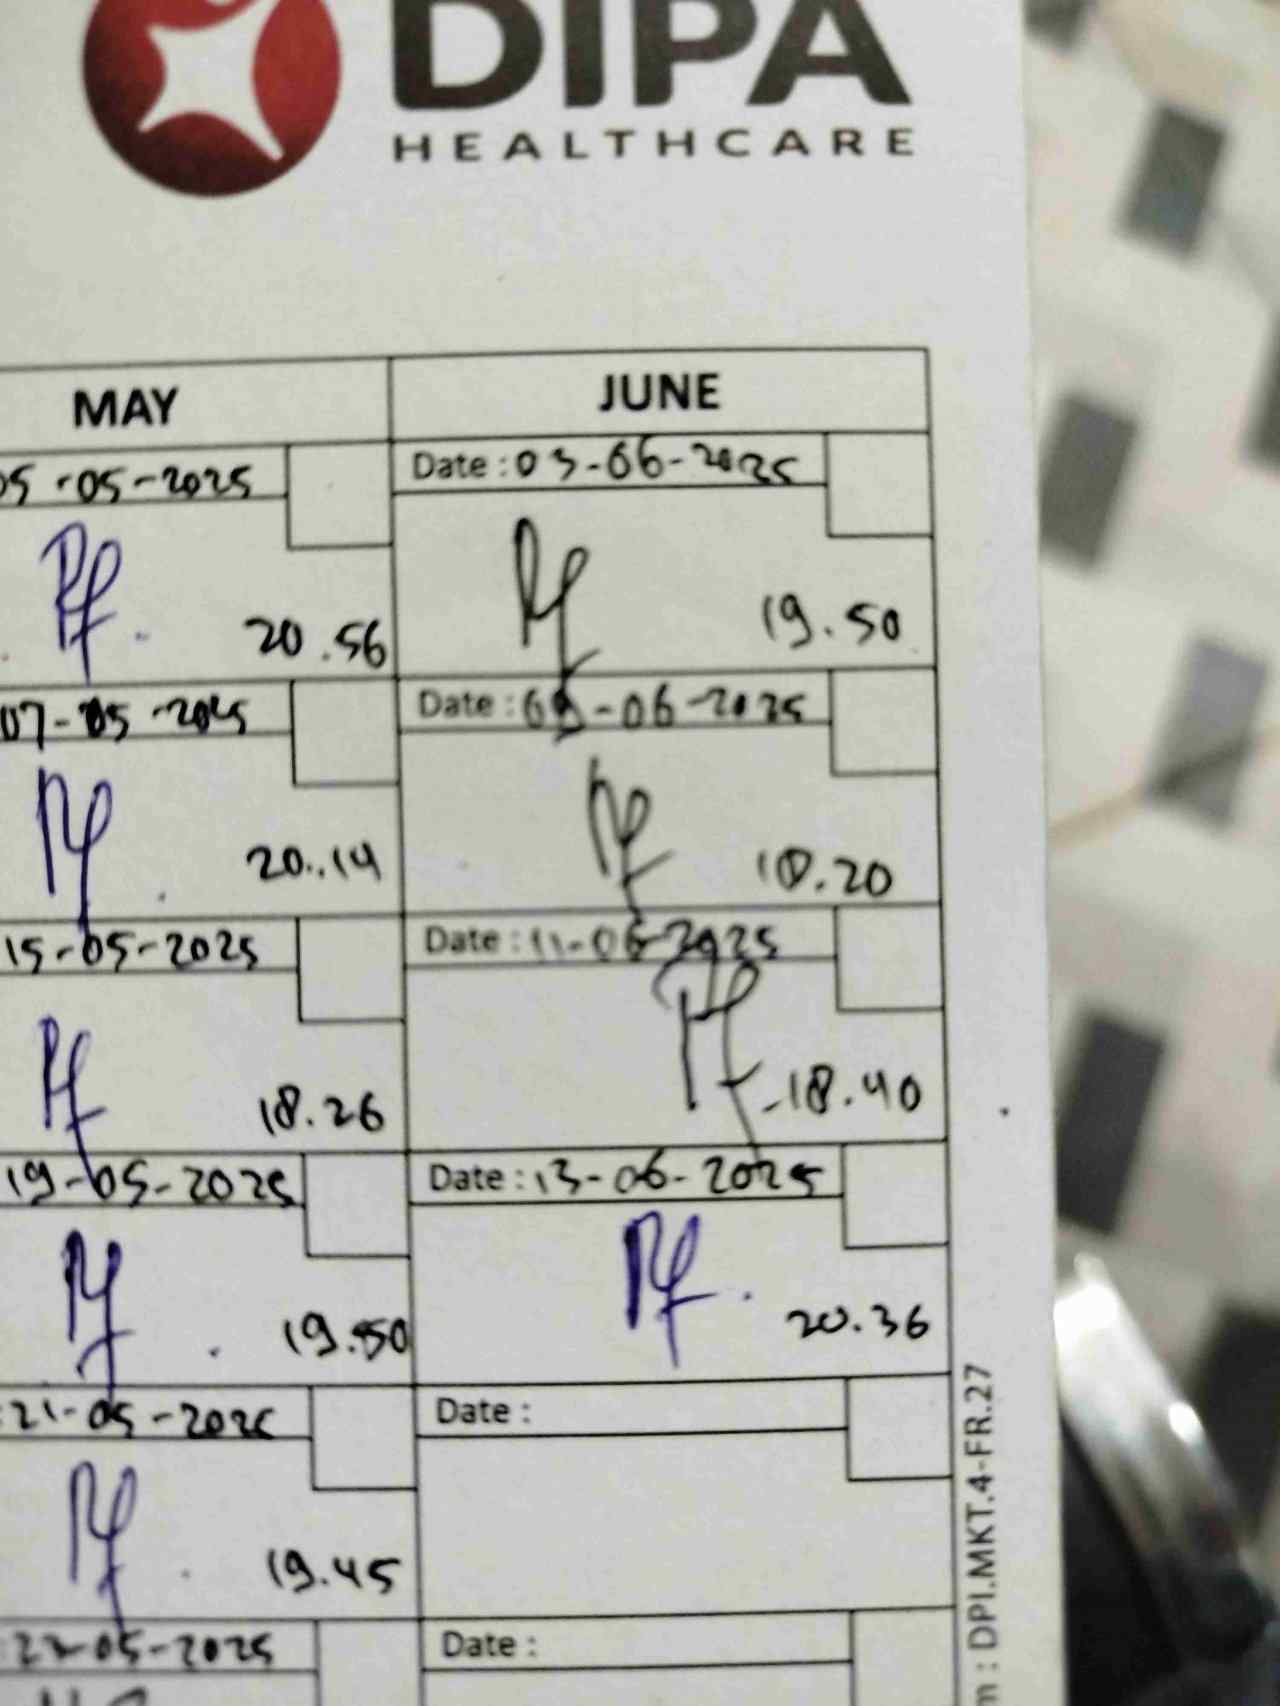 DIPA
HEALTHCARE
MAY
JUNE
05-05-2025
Date : 03-06-2025
20.56
19.50
07-05-2025
Date : -06-2025
20.14
18.20
15-05-2025
Date : 11-06-2025
18.26
18.40
19-05-2025
Date : 13-06-2025
19.50
20.36
:21-05-2025
Date :
19.45
-05-2025
Date :
m : DPI.MKT.4-FR.27